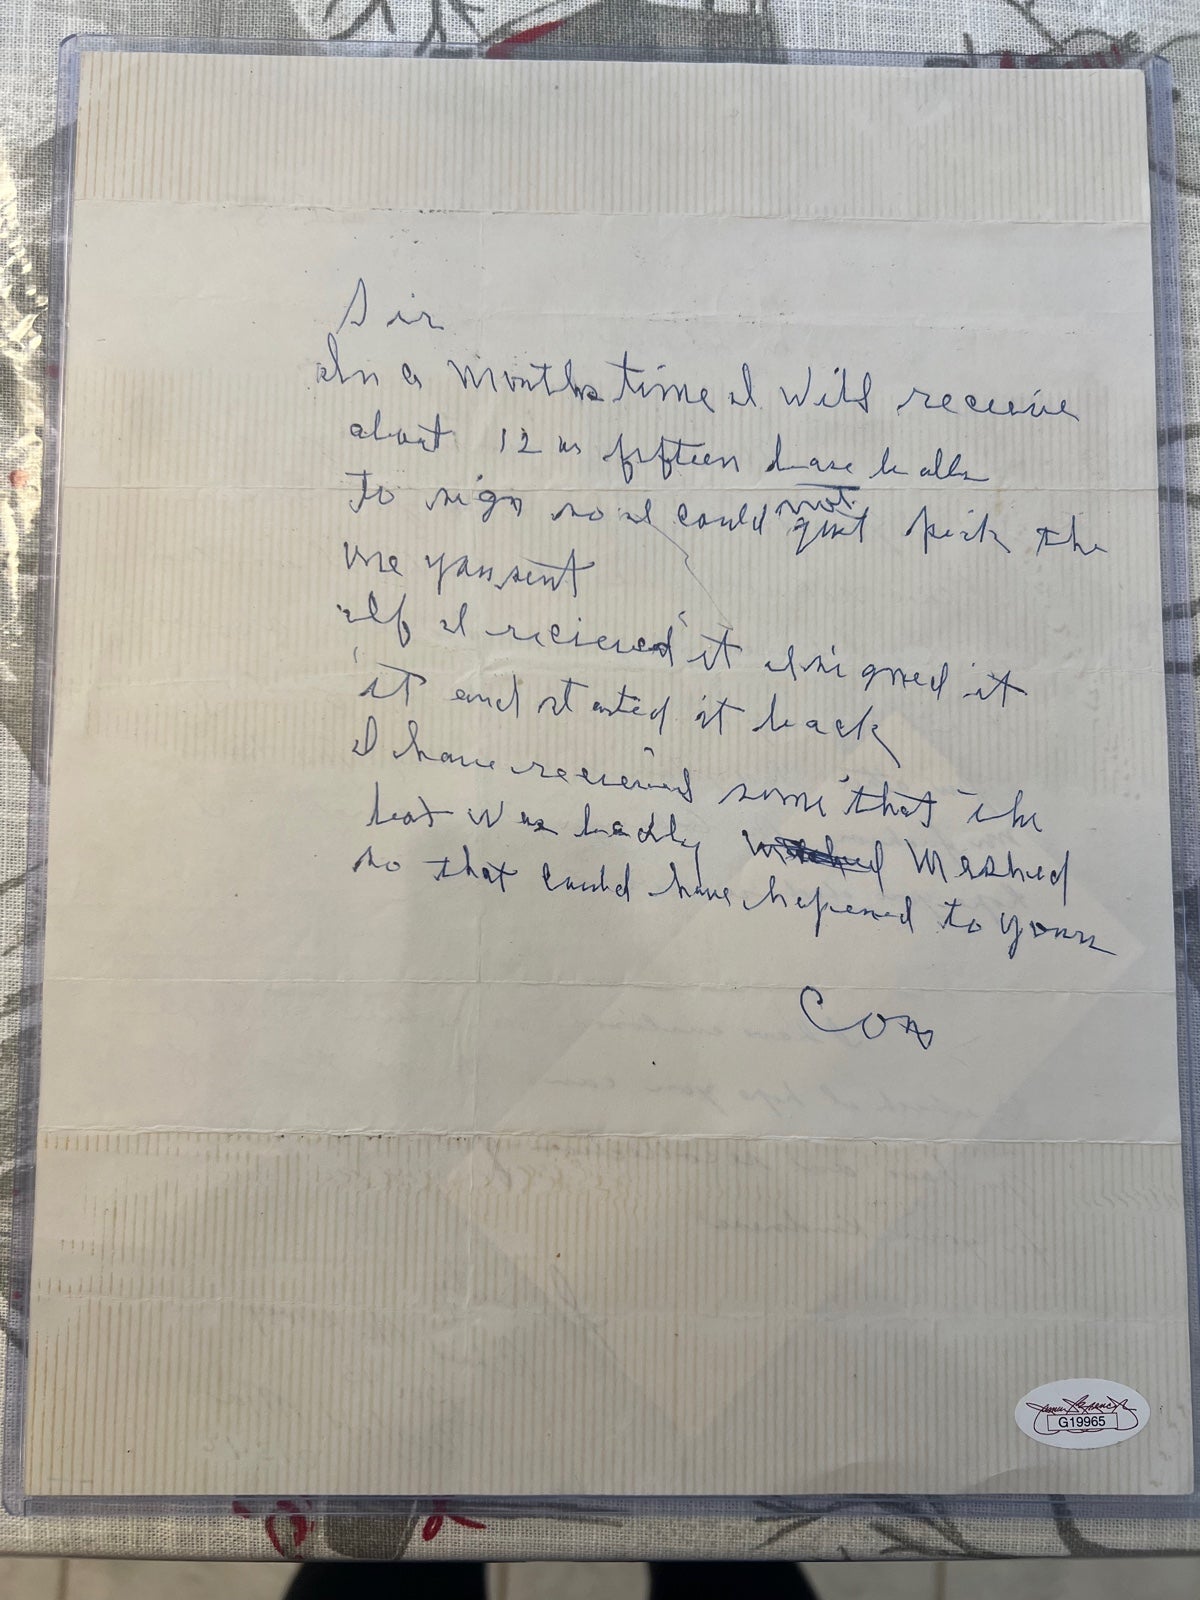 Sir
In a months time I will receive
about 12 or fifteen base balls
to sign so I could not just pick the
one you sent
If I recieved it I signed it
it and started it back
I have received some that the
box was badly Mashed
so that could have hapened to yours
G19965